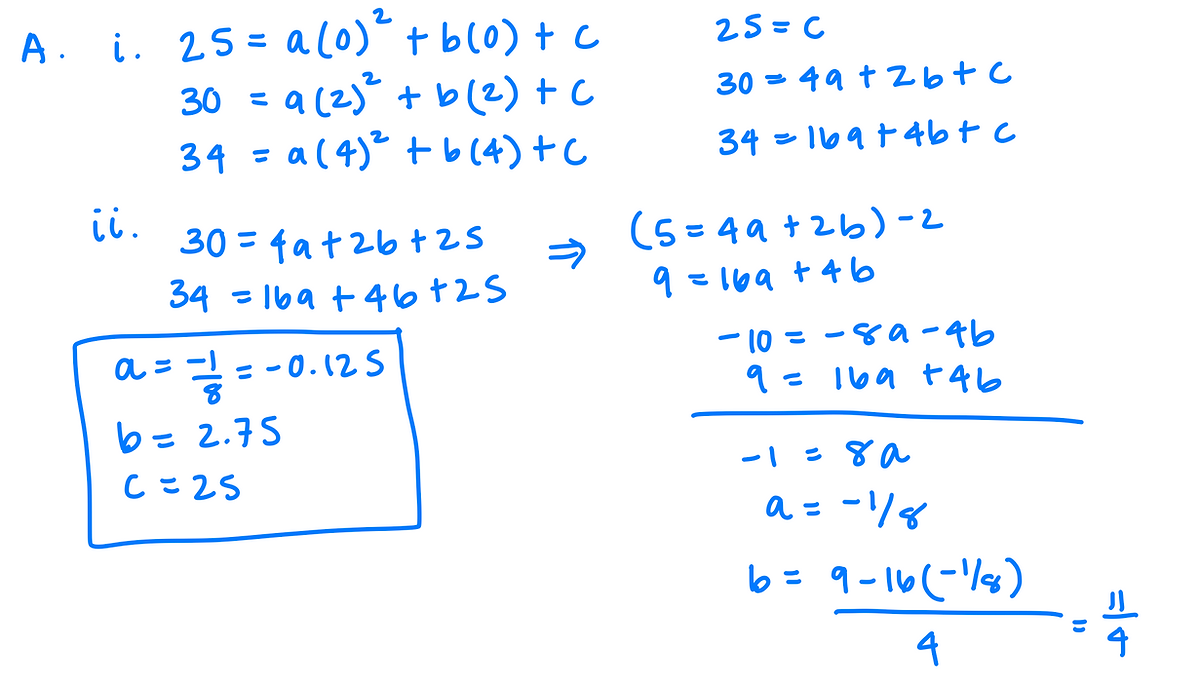 A. i. 25 = a(0)² + b(0) + c
30 = a(2)² + b(2) + c
34 = a(4)² + b(4) + c
25 = c
30 = 4a + 2b + c
34 = 16a + 4b + c
ii. 30 = 4a + 2b + 25
34 = 16a + 4b + 25
⇒ (5 = 4a + 2b) -2
9 = 16a + 4b
-10 = -8a - 4b
9 = 16a + 4b
-1 = 8a
a = -1/8
b = (9 - 16(-1/8))/4 = 11/4
a = -1/8 = -0.125
b = 2.75
c = 25